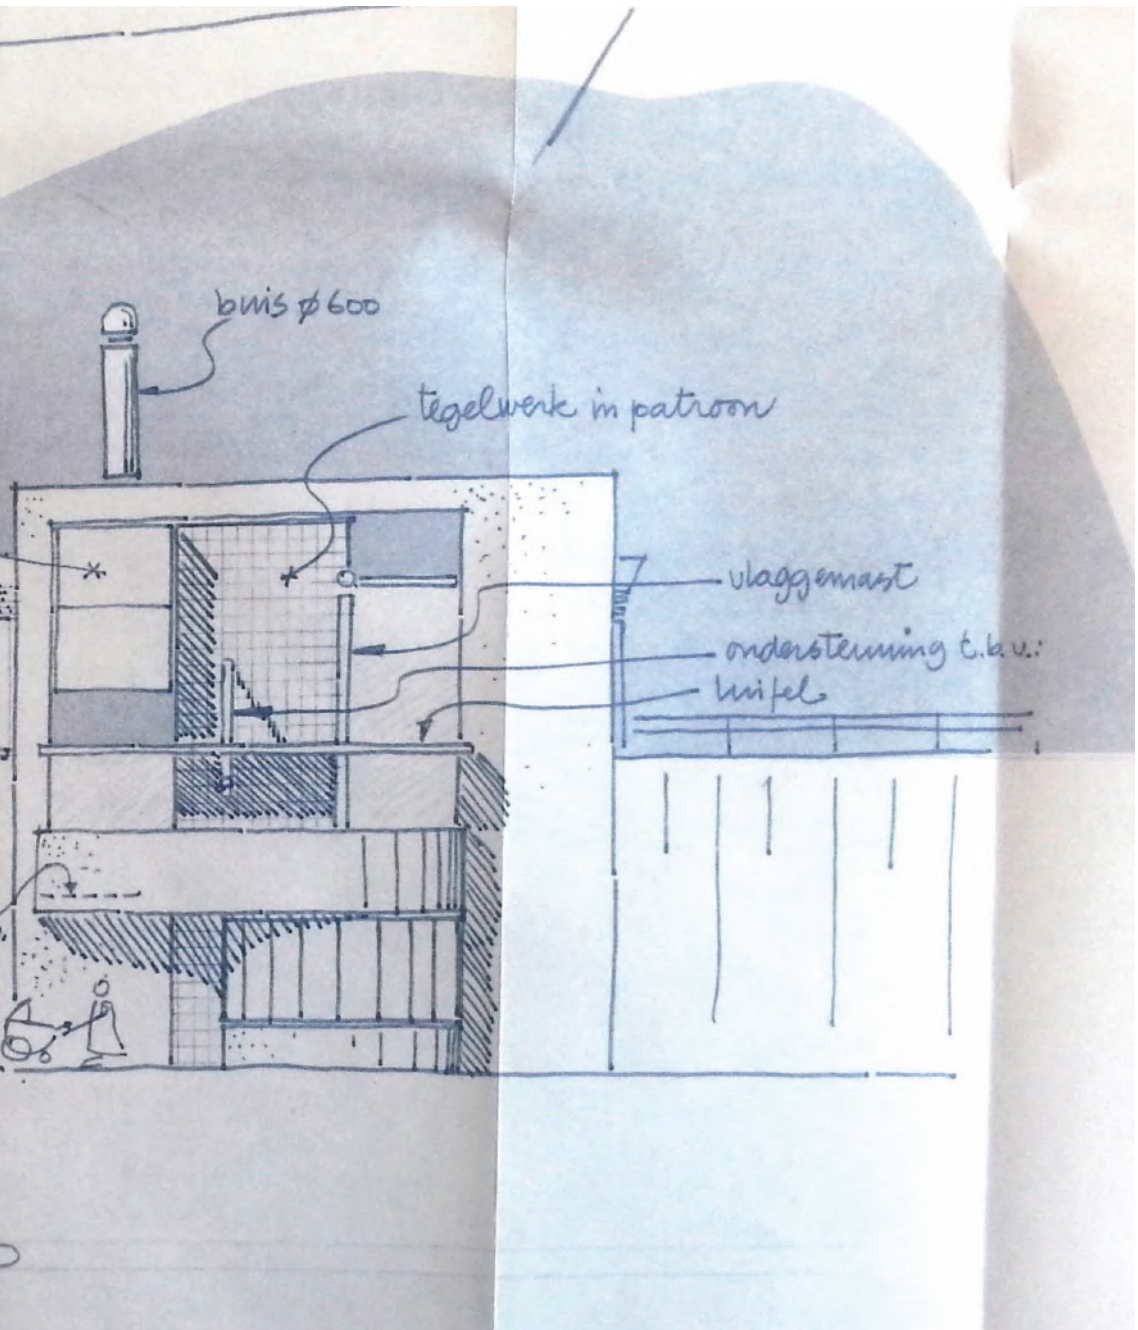 buis ø 600
tegelwerk in patroon
vlaggemast
ondersteuning t.b.v.:
luifel